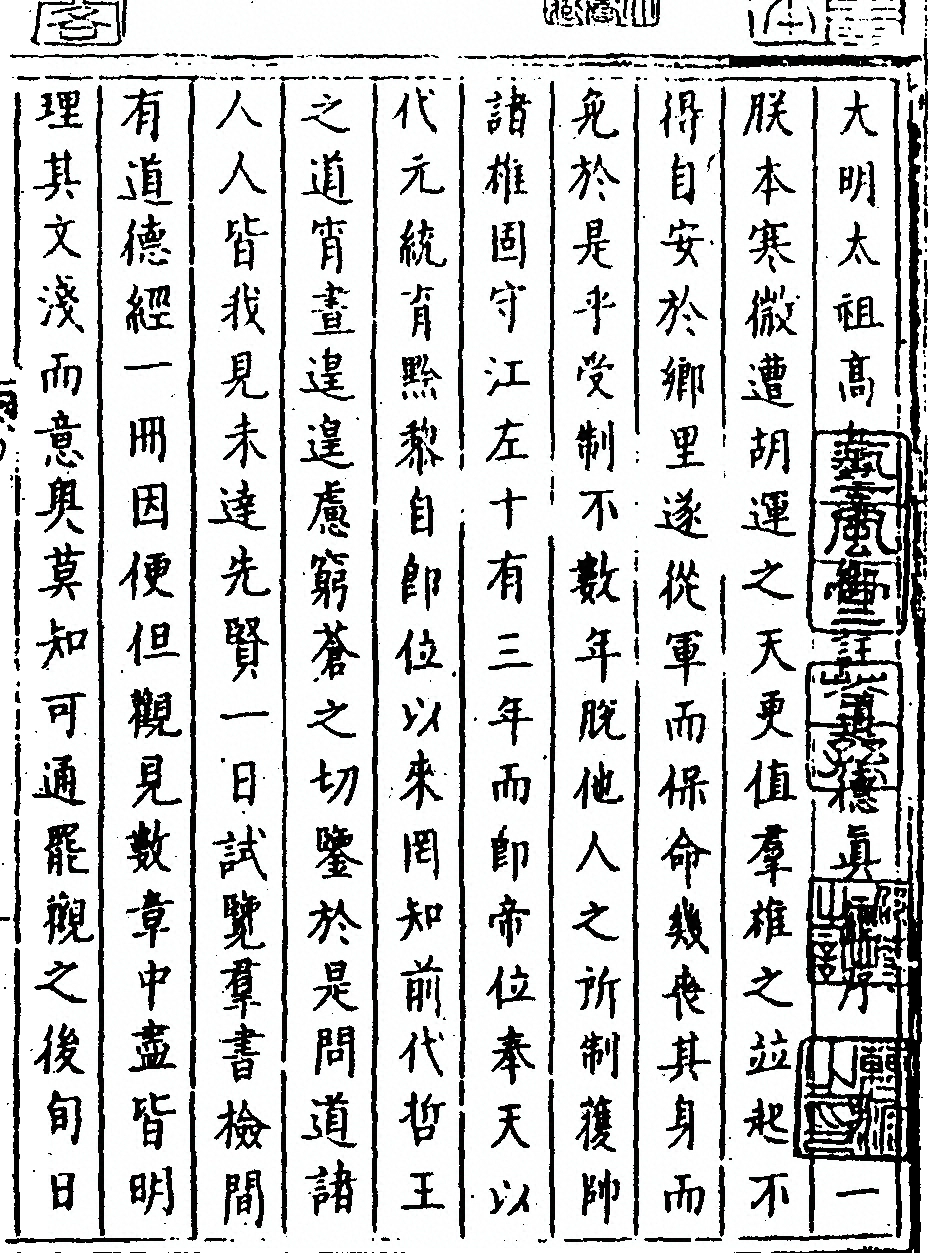 大明太祖高註道德眞序一
朕本寒微遭胡運之天更值羣雄之竝起不
得自安於鄉里遂從軍而保命幾喪其身而
免於是乎受制不數年脫他人之所制獲帥
諸雄固守江左十有三年而卽帝位奉天以
代元統育黔黎自卽位以來罔知前代哲王
之道宵晝遑遑慮窮蒼之切鑒於是問道諸
人人皆我見未達先賢一日試覽羣書檢間
有道德經一冊因便但觀見數章中盡皆明
理其文淺而意奧莫知可通罷觀之後旬日